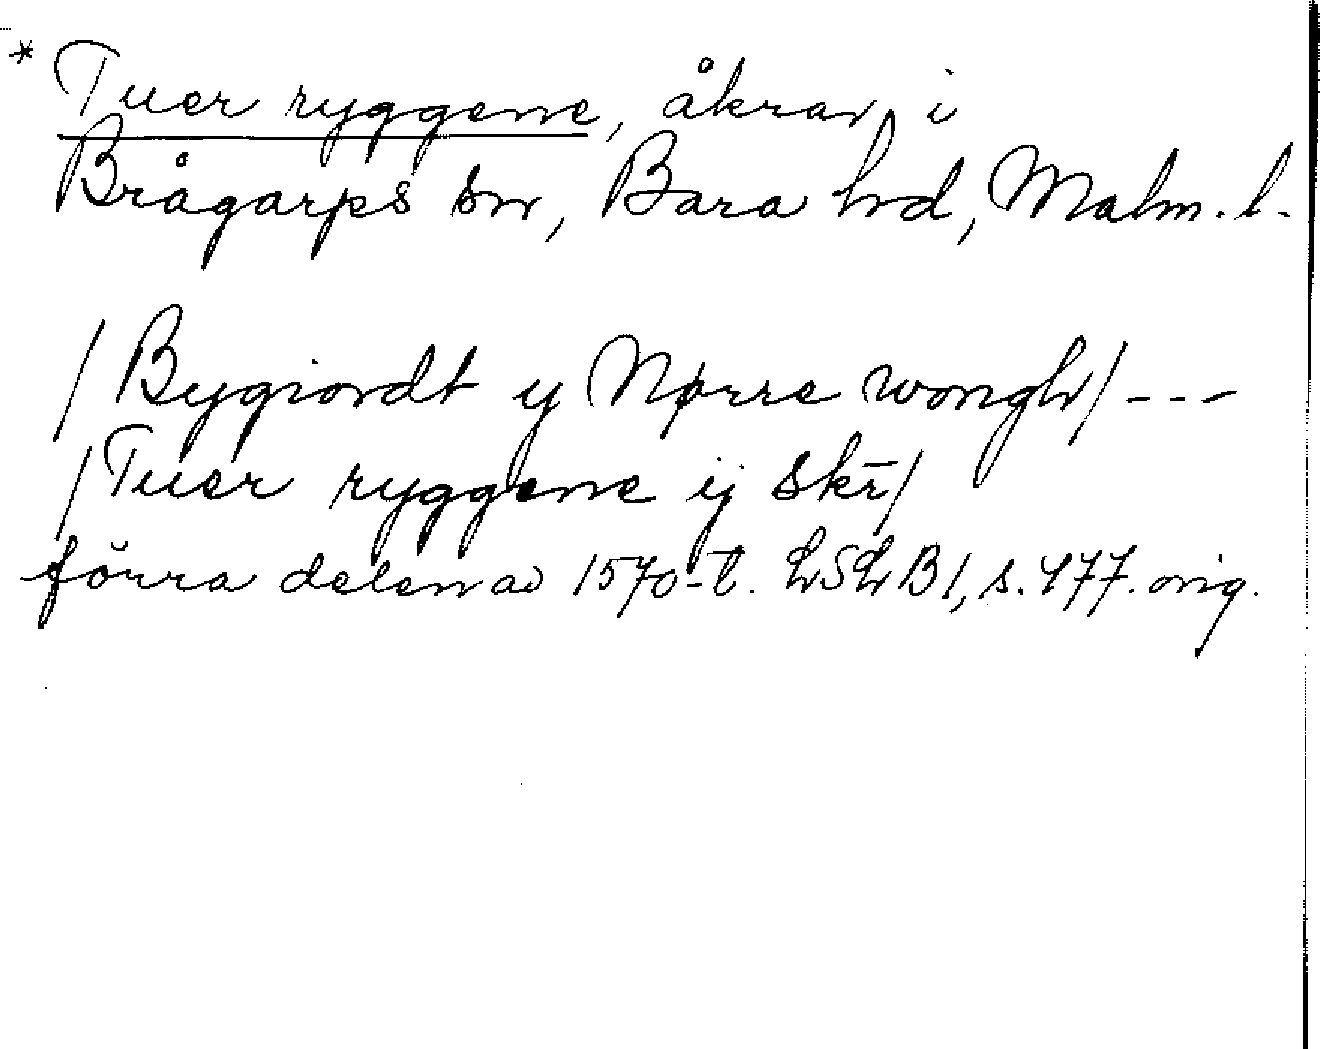 * Tuer ryggene, åkrar i
Brågarps sn, Bara hd, Malm. l.
/Bygiordt y Nørre wongh/ ---
/Tuer ryggene ij skr̄/
förra delen av 1570-t. LSLB1, s. 477. orig.